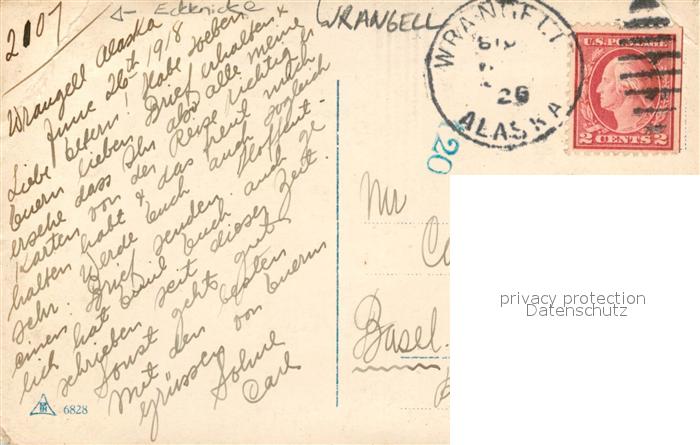 2107
← Eckknicke
WRANGELL
Wrangell Alaska
June 26th 1918
Liebe Eltern! Habe soeben
Euern lieben Brief erhalten &
ersehe dass Ihr also alle meine
Karten von der Reise richtig er
halten habt & das freut mich
sehr. Werde Euch auch sogleich
einen Brief senden. Hoffent-
lich hat Emil Euch auch ge
schrieben seit dieser Zeit.
Sonst geht gut
Mit den besten
Grüssen von Euerm
Sohne
Carl
6828
WRANGELL
26
ALASKA
U.S. POSTAGE
2 CENTS 2
20
Mr
Basel.
privacy protection
Datenschutz